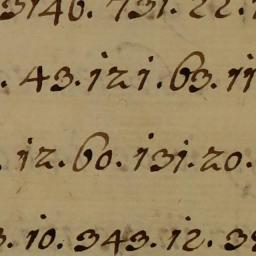 3146. 731. 22.
. 43. 121. 63. 11
. 12. 60. 131. 20.
3. 10. 343. 12. 39